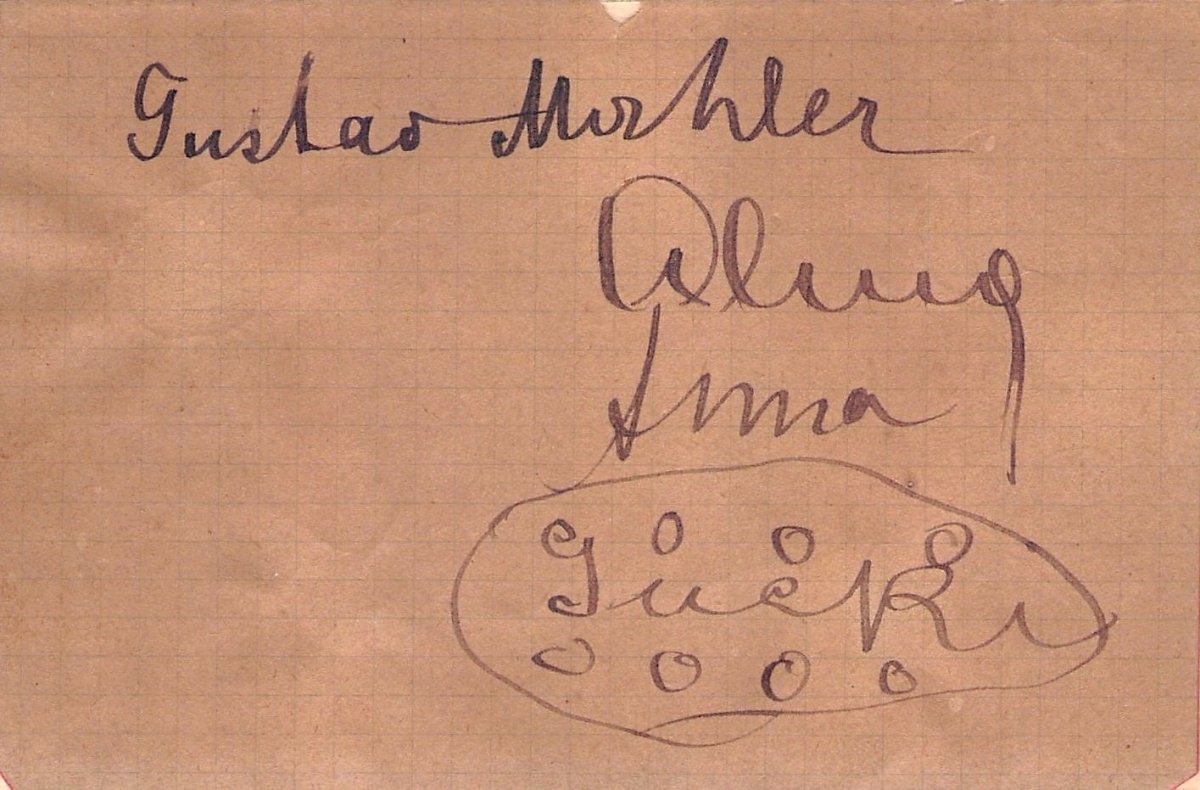 Gustav Mahler
Alma
Anna
Gucki